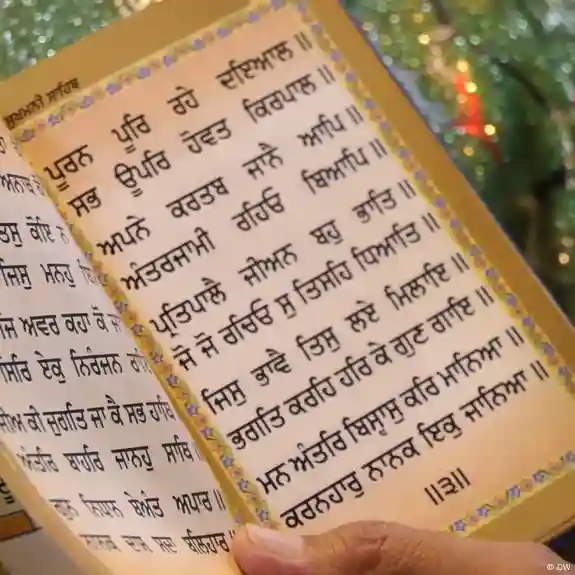 ਸੁਖਮਨੀ ਸਾਹਿਬ
ਕੋਇ ਨ
ਜਿਸੁ ਮਨਹੁ
ਅਵਰ ਕਹਾ ਕੋ
ਸਿਰਿ ਏਕੁ ਨਿਰੰਜਨ
ਜੀਅ ਕੀ ਜੁਗਤਿ ਜਾ ਕੈ ਸਭ
ਅੰਤਰਿ ਬਾਹਰਿ ਜਾਨਹੁ ਸਾਥਿ ॥
ਗੁਨ ਨਿਧਾਨ ਬੇਅੰਤ ਅਪਾਰ ॥
ਨਾਨਕ ਦਾਸ ਸਦਾ ਬਲਿਹਾਰ ॥
ਪੂਰਨ ਪੂਰਿ ਰਹੇ ਦਇਆਲ ॥
ਸਭ ਊਪਰਿ ਹੋਵਤ ਕਿਰਪਾਲ ॥
ਅਪਨੇ ਕਰਤਬ ਜਾਨੈ ਆਪਿ ॥
ਅੰਤਰਜਾਮੀ ਰਹਿਓ ਬਿਆਪਿ ॥
ਪ੍ਰਤਿਪਾਲੈ ਜੀਅਨ ਬਹੁ ਭਾਤਿ ॥
ਜੋ ਜੋ ਰਚਿਓ ਸੁ ਤਿਸਹਿ ਧਿਆਤਿ ॥
ਜਿਸੁ ਭਾਵੈ ਤਿਸੁ ਲਏ ਮਿਲਾਇ ॥
ਭਗਤਿ ਕਰਹਿ ਹਰਿ ਕੇ ਗੁਣ ਗਾਇ ॥
ਮਨ ਅੰਤਰਿ ਬਿਸ੍ਵਾਸੁ ਕਰਿ ਮਾਨਿਆ ॥
ਕਰਨਹਾਰੁ ਨਾਨਕ ਇਕੁ ਜਾਨਿਆ ॥
॥੩॥
© DW